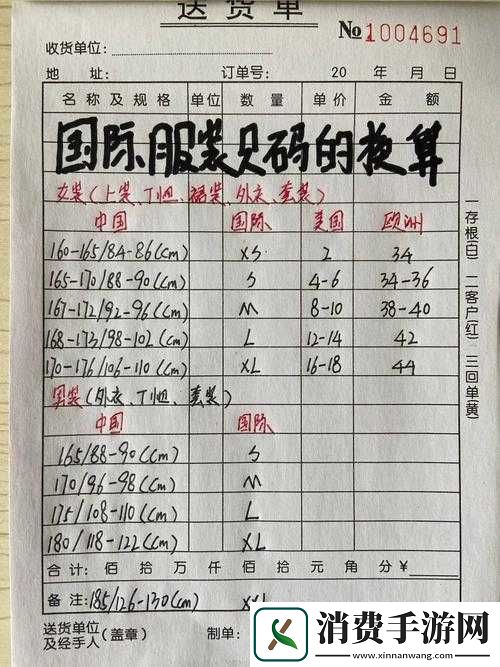 送货单
№ 1004691
收货单位:
地 址: 订单号: 20 年 月 日
名称及规格 单位 数量 单价 金额
国际服装尺码的换算
女装(上装、T恤、裙装、外衣、套装)
中国 国际 美国 欧洲
160-165/84-86(cm) XS 2 34
165-170/88-90(cm) S 4-6 34-36
167-172/92-96(cm) M 8-10 38-40
168-173/98-102(cm) L 12-14 42
170-176/106-110(cm) XL 16-18 44
男装(外衣、T恤、套装)
中国 国际
165/88-90(cm) S
170/96-98(cm) M
175/108-110(cm) L
180/118-122(cm) XL
合计: 佰 拾 万 仟 佰 拾 元 角 分 ¥
备注: 185/126-130(cm) XXL
送货单位及经手人(盖章) 制单:
一存根(白) 二客户(红) 三回单(黄)
消费手游网
www.xinnanwang.com